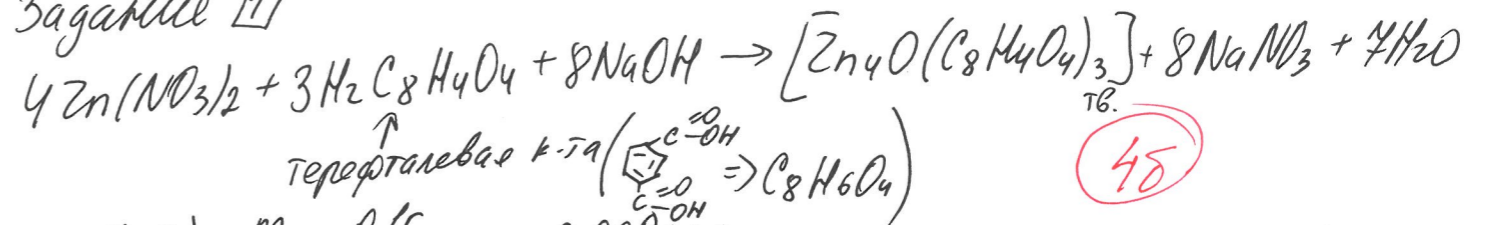 Задание 1
4Zn(NO3)2 + 3H2C8H4O4 + 8NaOH → [Zn4O(C8H4O4)3] + 8NaNO3 + 7H2O
тв.
терефталевая к-та ( C =O -OH C =O -OH => C8H6O4 )
4б